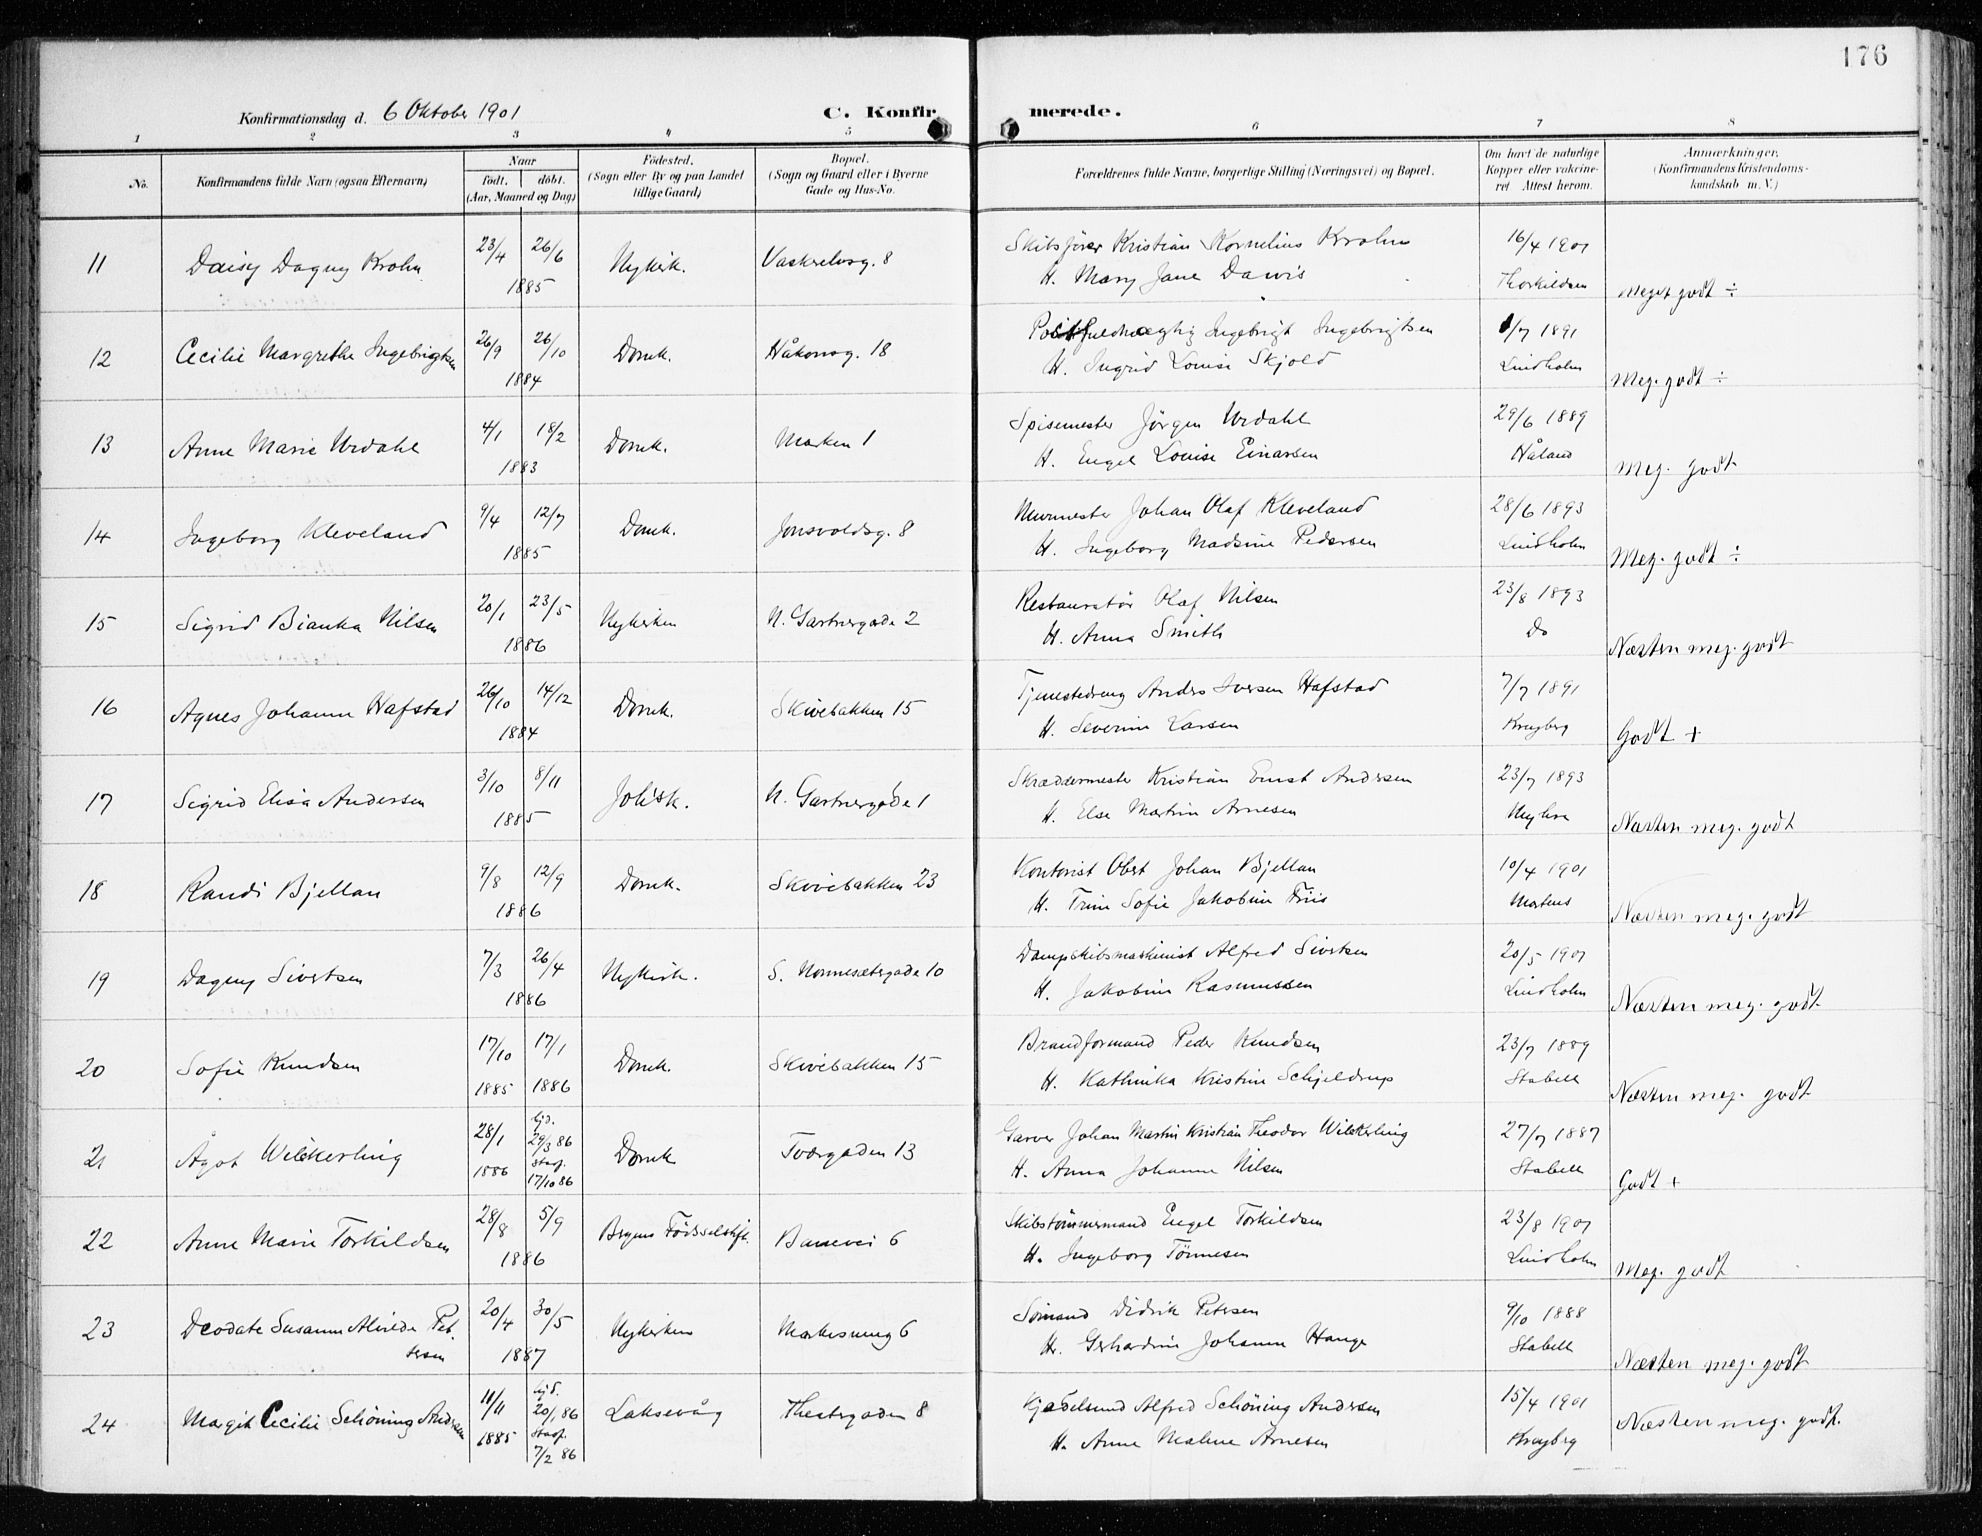 176
Konfirmationsdag d. 6 Oktober 1901
C. Konfirmerede.
1 2 3 4 5 6 7 8
No.
Konfirmandens fulde Navn (ogsaa Efternavn)
Naar
födt. döbt.
(Aar, Maaned og Dag)
Födested.
(Sogn eller By og paa Landet
tillige Gaard)
Bopæl.
(Sogn og Gaard eller i Byerne
Gade og Hus-No.
Forældrenes fulde Navne, borgerlige Stilling (Næringsvei) og Bopæl.
Om havt de naturlige
Kopper eller vakcine-
ret Attest herom.
Anmærkninger.
(Konfirmandens Kristendoms-
kundskab m. V.)
11 Daisy Dagny Krohn 23/4 26/6 1885 Nykirk. Vaskrelvsg. 8
Skibsfører Kristian Kornelius Krohn 16/4 1901
H. Mary Jane Dawis Thorkildsen Meget godt ÷
12 Cecilie Margrethe Ingebrigtsen 26/9 26/10 1884 Domk. Håkonsg. 18
Ingebrigt Ingebrigtsen 1/7 1891
H. Ingrid Louise Skjold Lindholm Meg. godt ÷
13 Anne Marie Urdahl 4/1 18/2 1883 Domk. Marken 1
Spisemester Jörgen Urdahl 29/6 1889
H. Engel Louise Einarsen Håland Meg. godt
14 Ingeborg Kleveland 9/4 12/7 1885 Domk. Jonsvoldsg. 8
Murmester Johan Olaf Kleveland 28/6 1893
H. Ingeborg Madsine Pedersen Lindholm Meg. godt ÷
15 Sigrid Bianka Nilsen 20/1 23/5 1886 Nykirken N. Gartnergade 2
Restauratör Olaf Nilsen 23/8 1893
H. Anna Smith Do Næsten meg. godt
16 Agnes Johanne Hafstad 26/10 14/12 1884 Domk. Skivebakken 15
Tjenestedreng Anders Iversen Hafstad 7/7 1891
H. Severine Larsen Krayberg Godt +
17 Sigrid Elisa Andersen 3/10 8/11 1885 Johsk. N. Gartnergade 1
Skræddermester Kristian Ernst Andersen 23/7 1893
H. Else Martine Arnesen Myhre Næsten meg. godt
18 Randi Bjellan 9/8 12/9 1886 Domk. Skivebakken 23
Kontorist Obert Johan Bjellan 10/4 1901
H. Trine Sofie Jakobine Friis Martens Næsten meg. godt
19 Dagny Sivertsen 7/3 26/4 1886 Nykirk. S. Nonnesætergade 10
Dampskibsmaskinist Alfred Sivertsen 20/5 1901
H. Jakobine Rasmussen Lindholm Næsten meg. godt
20 Sofie Knudsen 17/10 1885 17/1 1886 Domk. Skivebakken 15
Brandformand Peder Knudsen 23/7 1889
H. Kathinka Kristine Schjeldrup Stabell Næsten meg. godt
21 Ågot Wilckerling 28/1 1886 hjd. 29/3 86 stadf. 17/10 86 Domk Tværgaden 13
Garver Johan Martin Kristian Theodor Wilckerling 27/7 1887
H. Anna Johanne Nilsen Stabell Godt +
22 Anne Marie Torkildsen 28/8 5/9 1886 Bgens Födselstift. Banevei 6
Skibstömmermand Engel Torkildsen 23/8 1901
H. Ingeborg Tönnesen Lindholm Meg. godt
23 Deodate Susanne Alvilde Pet-
ersen 20/4 30/5 1887 Nykirken Markesmug 6
Sömand Didrik Petersen 9/10 1888
H. Gerhardine Johanne Hauge Stabell Næsten meg. godt
24 Margit Cecilie Schöning Andersen 11/11 1885 hjd. 20/1 86 stadf. 7/2 86 Laksevåg Theatergaden 8
Kjedelsmed Alfred Schöning Andersen 15/4 1901
H. Anne Malene Arnesen Krayberg Næsten meg. godt.